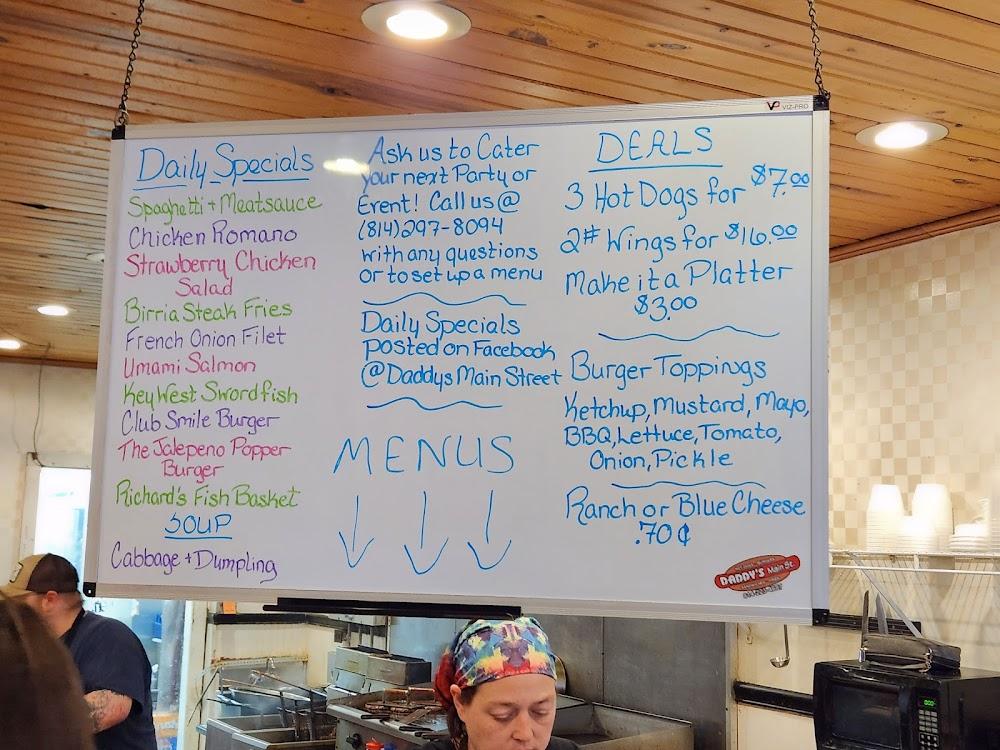 VP VIZ-PRO
Daily Specials
Spaghetti + Meatsauce
Chicken Romano
Strawberry Chicken
Salad
Birria Steak Fries
French Onion Filet
Umami Salmon
Key West Swordfish
Club Smile Burger
The Jalepeno Popper
Burger
Richard's Fish Basket
SOUP
Cabbage + Dumpling
Ask us to Cater
your next Party or
Event! Call us @
(814) 297-8094
with any questions
or to set up a menu
Daily Specials
posted on Facebook
@Daddys Main Street
MENUS
DEALS
3 Hot Dogs for $7.00
2# Wings for $16.00
Make it a Platter
$3.00
Burger Toppings
Ketchup, Mustard, Mayo,
BBQ, Lettuce, Tomato,
Onion, Pickle
Ranch or Blue Cheese
.70¢
DADDY'S Main St.